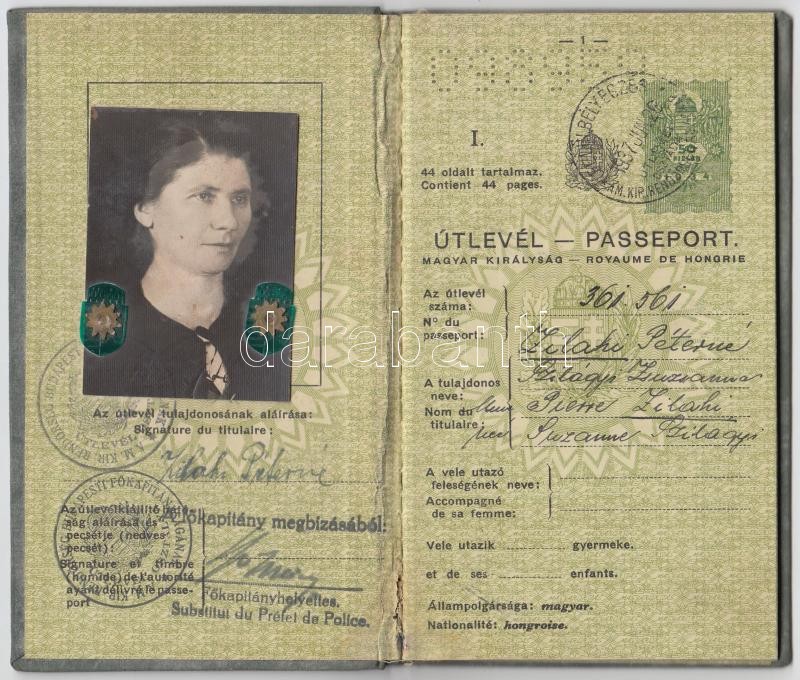 Az útlevél tulajdonosának aláírása:
Signature du titulaire:
Zilahi Péterné
Az útlevélkiállító ható-
ság aláírása és
pecsétje (nedves
pecsét):
Signature et timbre
(humide) de l'autorité
ayant délivré le passe-
port
A főkapitány megbizásából:
Főkapitányhelyettes.
Substitut du Préfet de Police.
— 1 —
I.
44 oldalt tartalmaz.
Contient 44 pages.
1937
50
ÚTLEVÉL — PASSEPORT.
MAGYAR KIRÁLYSÁG — ROYAUME DE HONGRIE
Az útlevél
száma:
N° du
passeport:
361.561
A tulajdonos
neve:
Nom du
titulaire:
Zilahi Péterné
Szilágyi Zsuzsanna
Mme Pierre Zilahi
née Suzanne Szilágyi
A vele utazó
feleségének neve:
Accompagné
de sa femme:
Vele utazik gyermeke.
et de ses enfants.
Állampolgársága: magyar.
Nationalité: hongroise.
darabanth